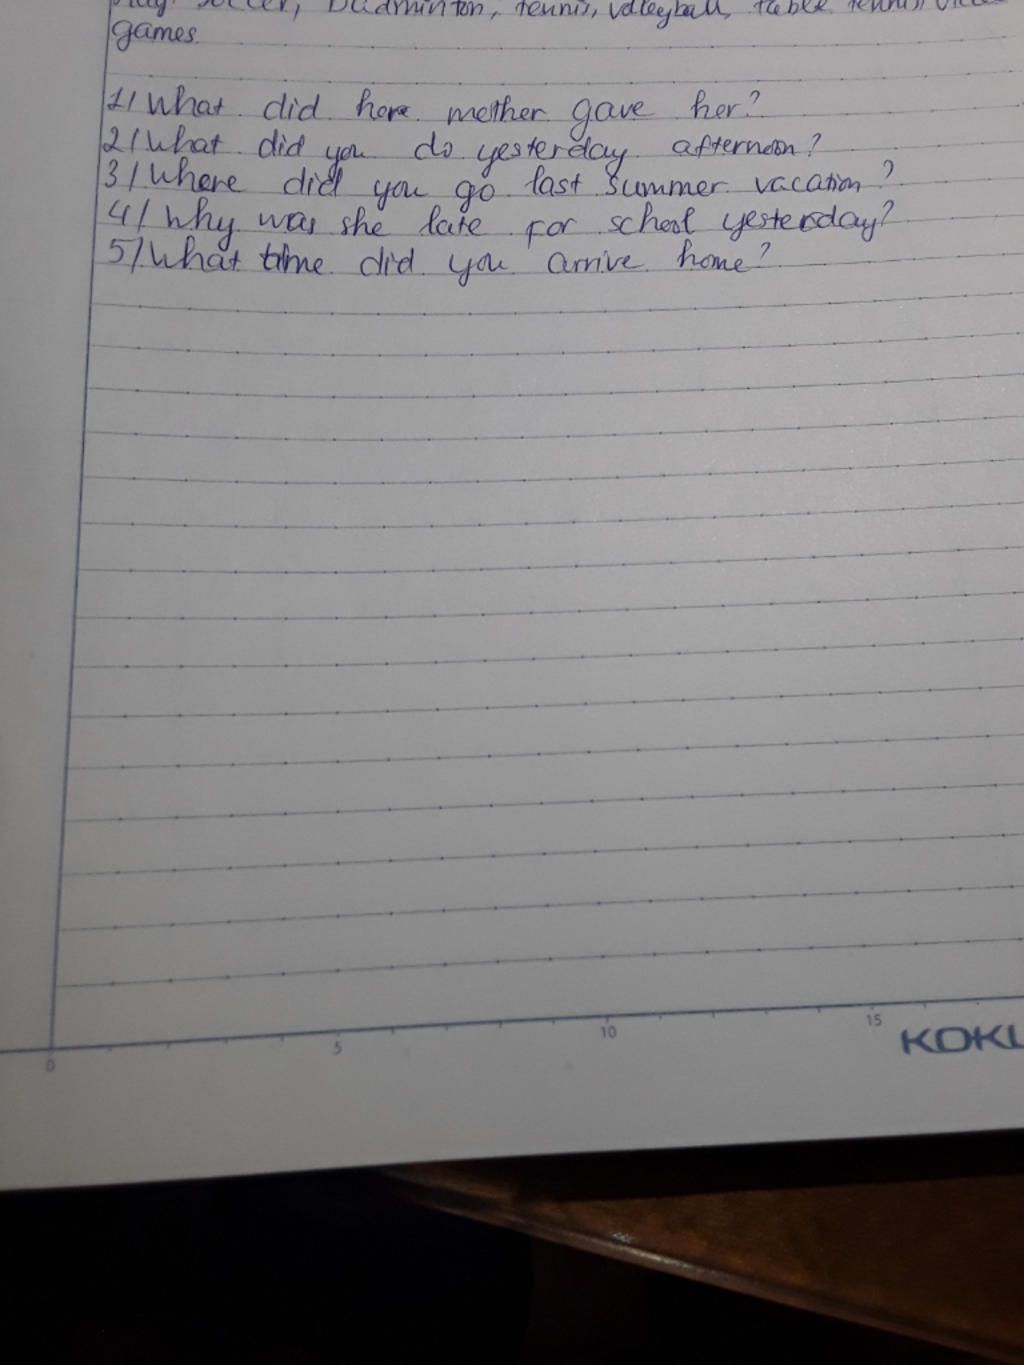 play soccer, badminton, tennis, volleyball, table tennis, video
games
1/ What did here mother gave her?
2/ What did you do yesterday afternoon?
3/ Where did you go last summer vacation?
4/ Why was she late for school yesterday?
5/ What time did you arrive home?
0 5 10 15